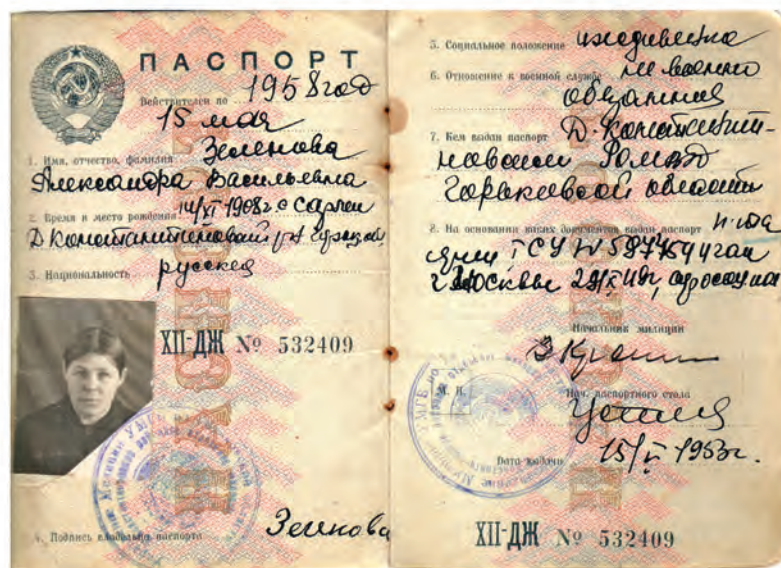 ПАСПОРТ
Действителен по 1958 год
15 мая
1. Имя, отчество, фамилия Зеленова
Александра Васильевна
2. Время и место рождения 14/XI 1908г с
Д Константиновский
3. Национальность русская
XII-ДЖ № 532409
4. Подпись владельца паспорта Зеленова
5. Социальное положение иждивенка
6. Отношение к военной службе не военно
обязанная
7. Кем выдан паспорт Д. Константи-
новским
Горьковской области
8. На основании каких документов выдан паспорт
г Москвы
Начальник милиции
М. П.
Нач. паспортного стола
Дата выдачи 15/V 1953г.
XII-ДЖ № 532409